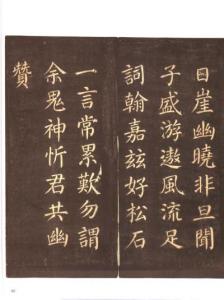 日崖幽曉非旦聞
子盛游遨風流足
詞翰嘉玆好松石
一言常累歎勿謂
余鬼神忻君共幽
贊